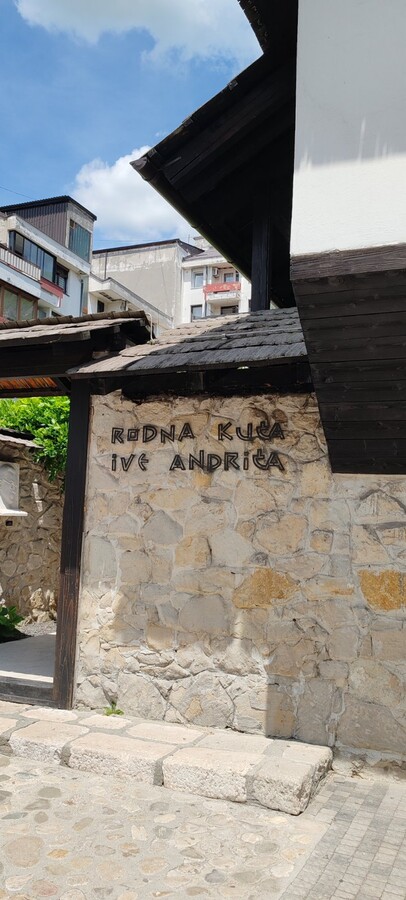 RODNA KUĆA
IVE ANDRIĆA